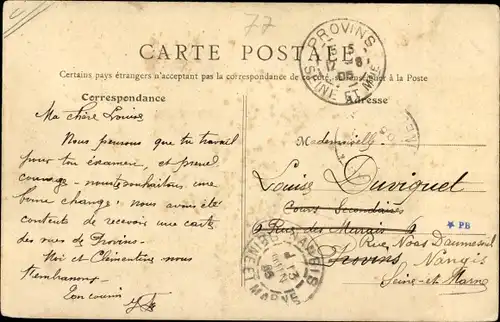 77
CARTE POSTALE
Certains pays étrangers n'acceptant pas la correspondance de ce côté, se renseigner à la Poste
Correspondance
Adresse
PROVINS
SEINE ET MNE
Ma chère Louise
Nous pensons que tu travail
pour ton examen, et prend
courage - nous te souhaitons une
bonne chance; nous avons été
contents de recevoir une carte
des rues de Provins.
Moi et Clémentine nous
t'embrassons.
Ton cousin
Mademoiselle
Louise Duviquet
Cours Secondaires
9 Rue des Marais 9
Provins
Rue Noas Daumesnil
Nangis
Seine-et-Marne
* PB
NANGIS
SEINE ET MARNE